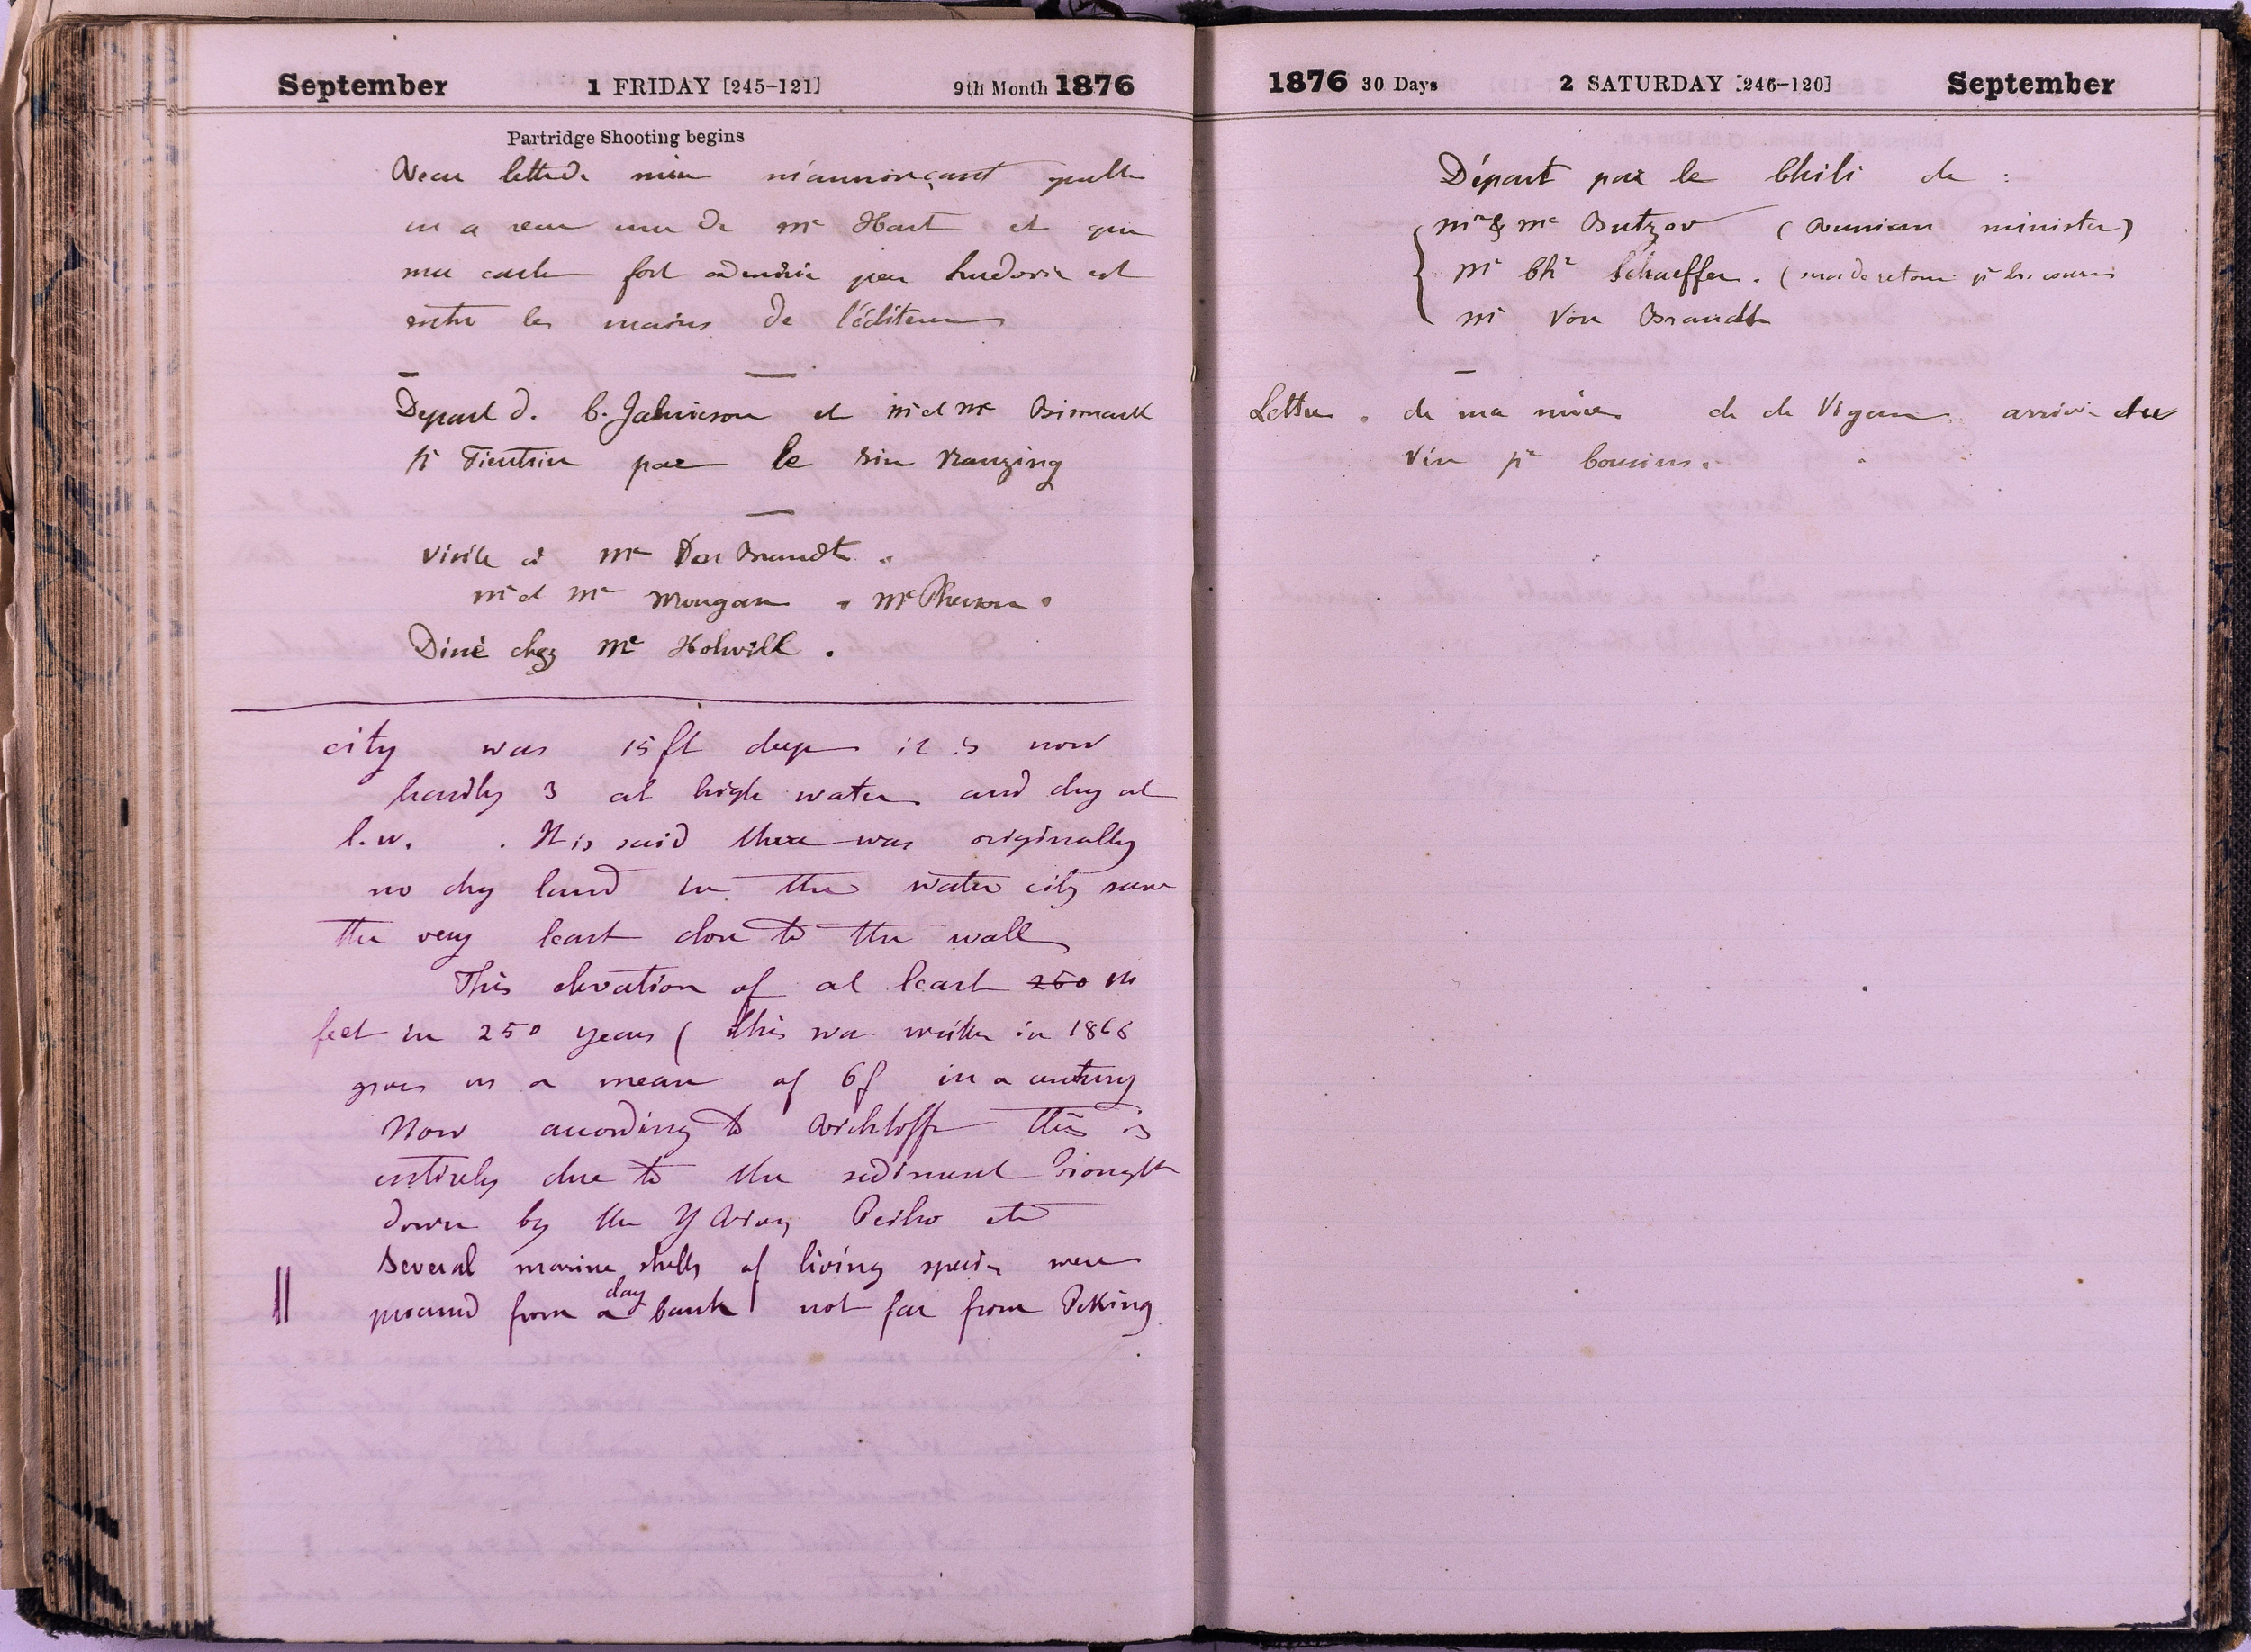 September 1 FRIDAY [245–121] 9th Month 1876
Partridge Shooting begins
Reçu lettre de mère m'annonçant qu'elle
en a reçu une de Mr Hart et que
ma carte fort admirée par est
entre les mains de l'éditeur
Depart d. C. Jamieson et Mr et Me Bismark
pr Tientsin par le Sin Nanzing
Visite à Mr Von Brandt .
Mr et Me Morgan . McPherson .
Diné chez Mr Holwill .
city was 15 ft deep it is now
hardly 3 at high water and dry at
l.w. . It is said there was originally
no dry land in the water city save
the very least close to the wall
This elevation of at least 250 in
feet in 250 years ( this was written in 1868
gives us a mean of 6f in a century
Now according to Richtoffen this is
entirely due to the sediment brought
down by the Y River Peiho etc
Several marine shells of living species were
procured from a clay bank not far from Peking
1876 30 Days 2 SATURDAY [246–120] September
Départ par le Chili de :
Mr & Me Butzov ( Russian minister )
Mr Chr Schaeffer . ( de retour pr les courses
Mr Von Brandt
Lettre . de ma mère de de Vigan arrivée du
Vin pr Cousins .